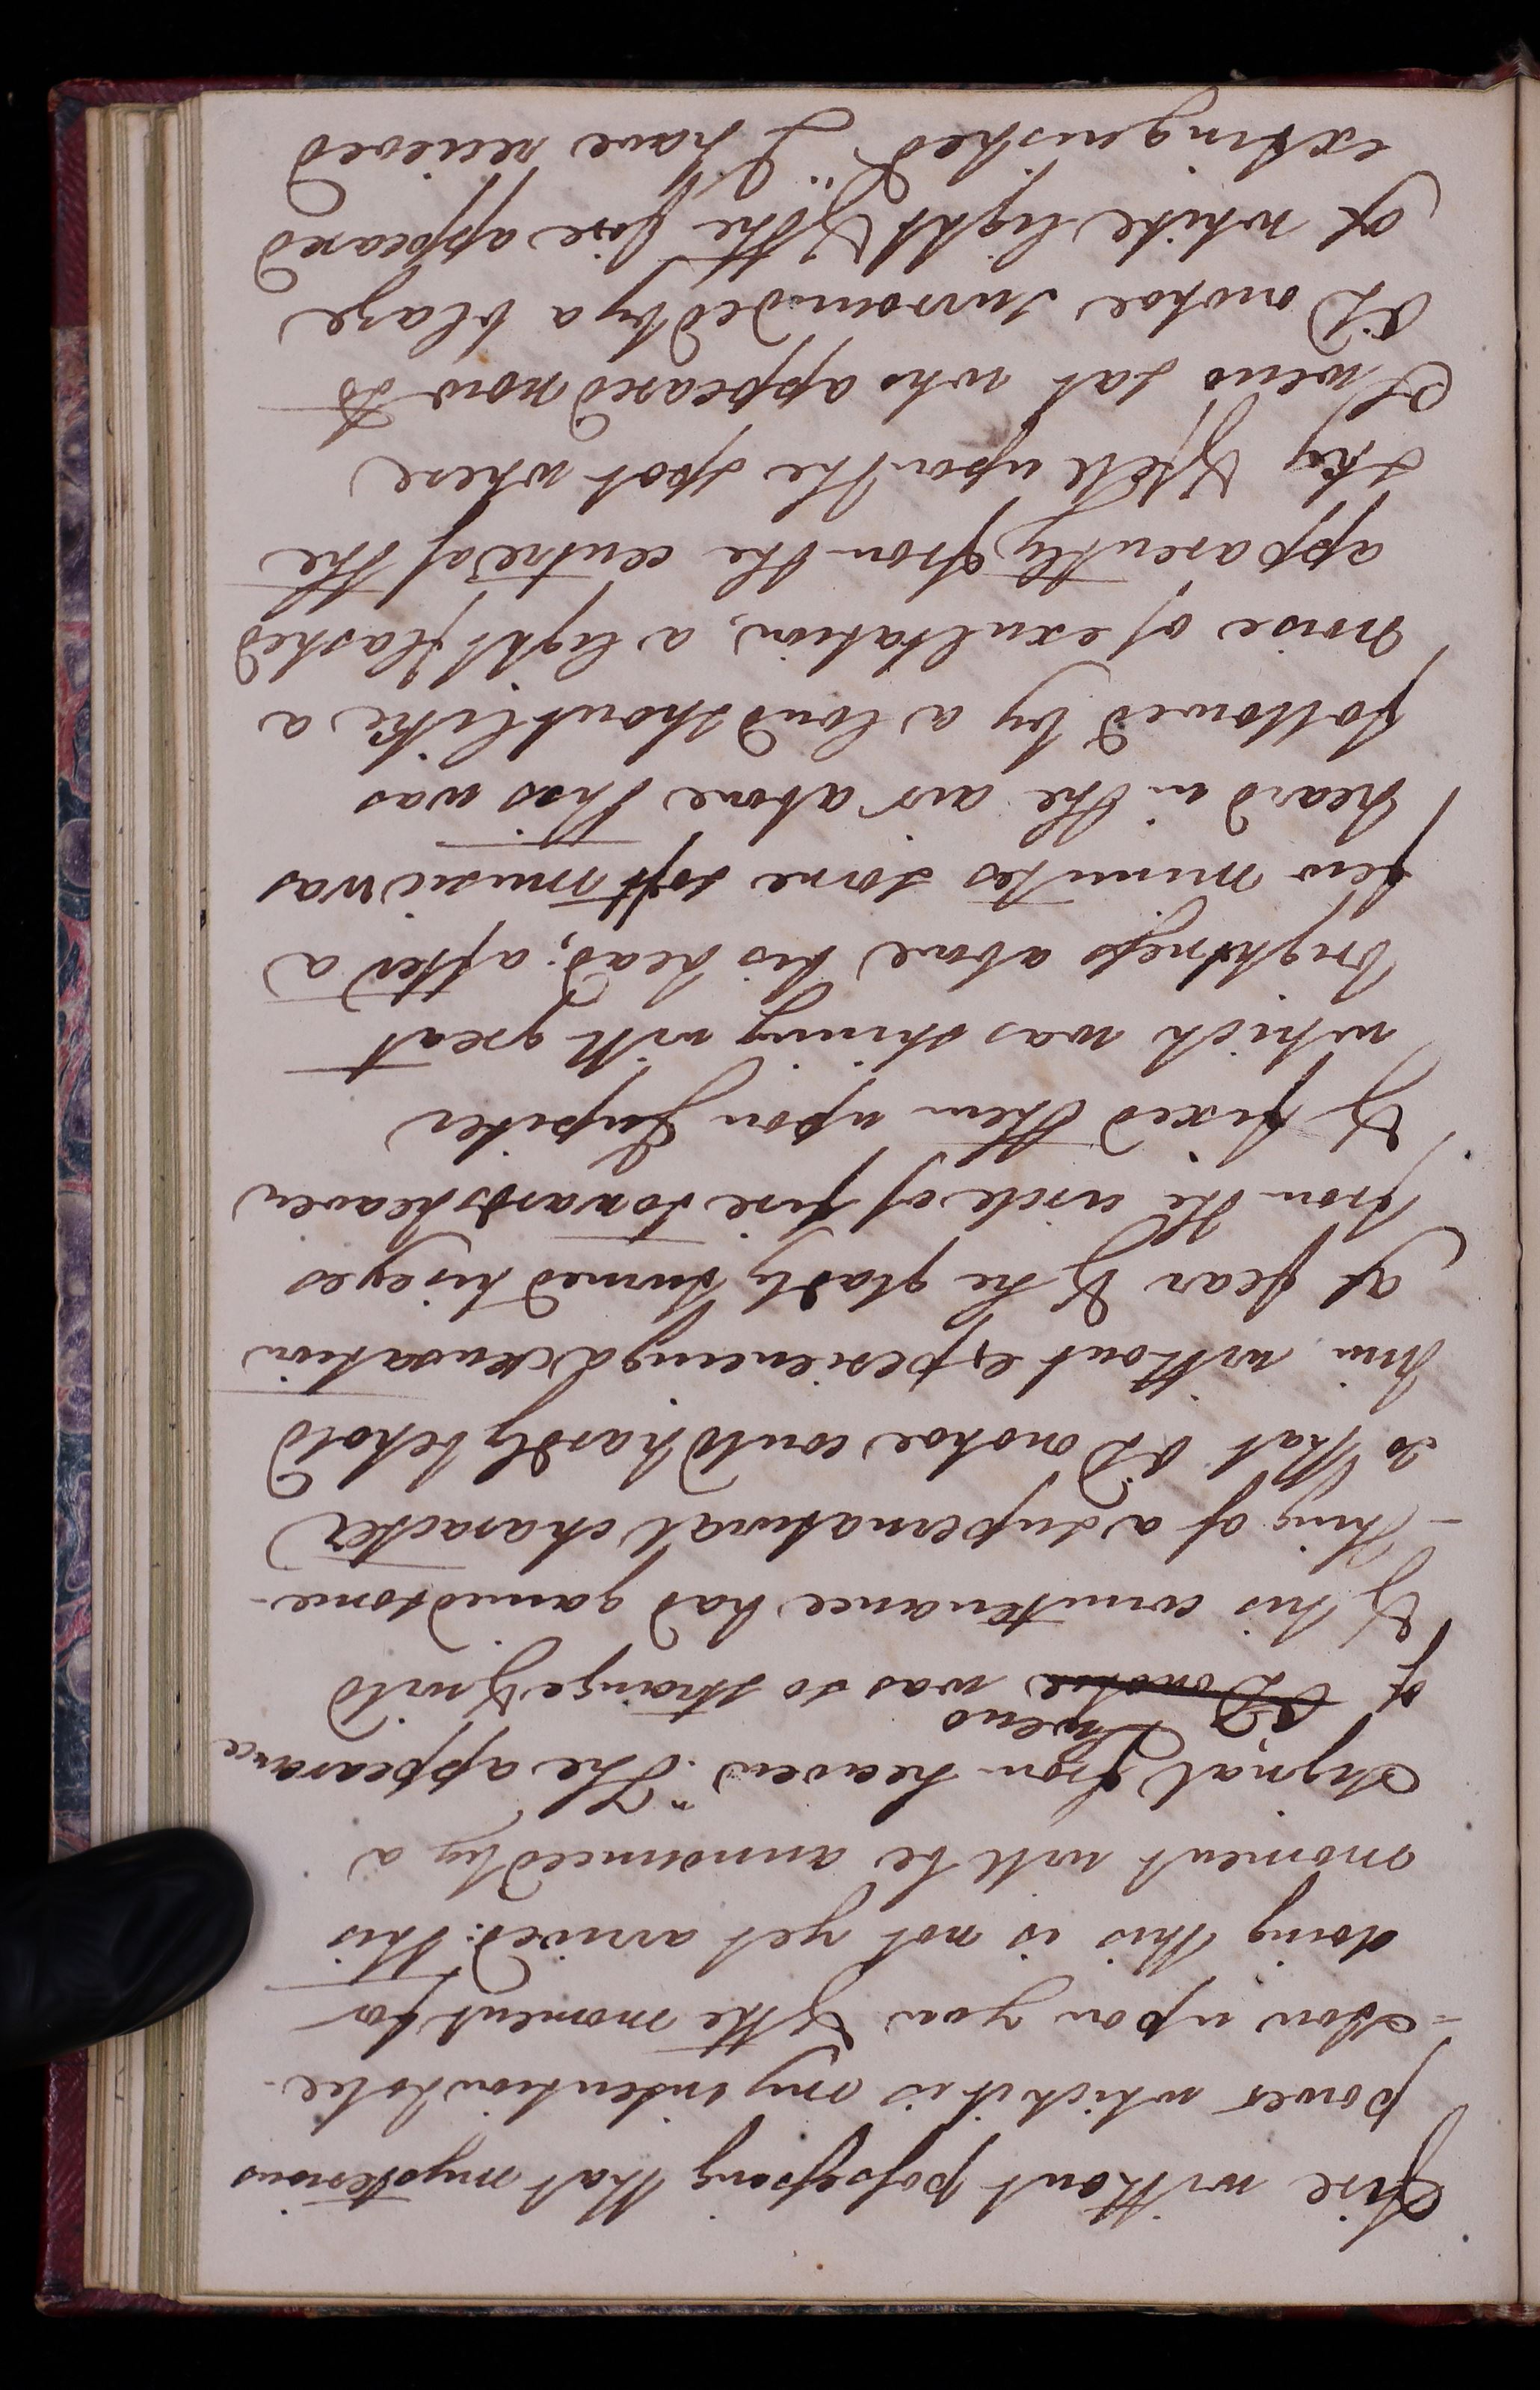 fire without possessing that mysterious
power which it is my intention to be-
-stow upon you & the moment for
doing this is not yet arrived: this
moment will be announced by a
signal from heaven." The appearance
Dweno
of O'Donohoe was so strange & wild
& his countenance had gained some-
-thing of a supernatural character
so that O'Donohoe could hardly behold
him without experiencing a sensation
of fear & he gladly turned his eyes
from the circle of fire towards heaven
& fixed them upon Jupiter
which was shining with great
brightness above his head; after a
few minutes some soft music was
heard in the air above this was
followed by a loud shout like a
noise of exultation, a light flashed
apparently from the centre of the
sky & fell upon the spot where
Dweno sat who appeared now to
O'Donohoe surrounded by a blaze
of white light & the fire appeared
extinguished "I have recieved